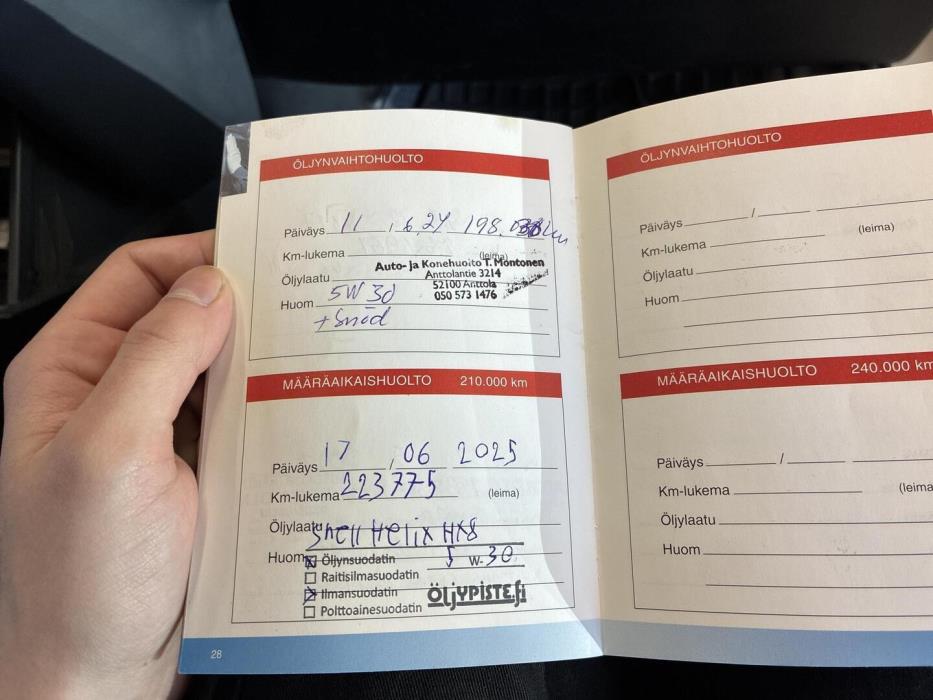 ÖLJYNVAIHTOHUOLTO
Päiväys 11 . 6 . 24 198.
Km-lukema (leima)
Auto- ja Konehuolto T. Möntonen
Öljylaatu Anttolantie 3214
52100 Anttola
Huom 5W 30 050 573 1476
MÄÄRÄAIKAISHUOLTO 210.000 km
Päiväys 17 / 06 2025
Km-lukema 223775 (leima)
Öljylaatu Shell Helix HX8
Huom Öljynsuodatin 5 W-30
Raitisilmasuodatin
Ilmansuodatin
Polttoainesuodatin ÖljYPISTE.fi
28
ÖLJYNVAIHTOHUOLTO
Päiväys /
Km-lukema (leima)
Öljylaatu
Huom
MÄÄRÄAIKAISHUOLTO 240.000 km
Päiväys /
Km-lukema (leima
Öljylaatu
Huom